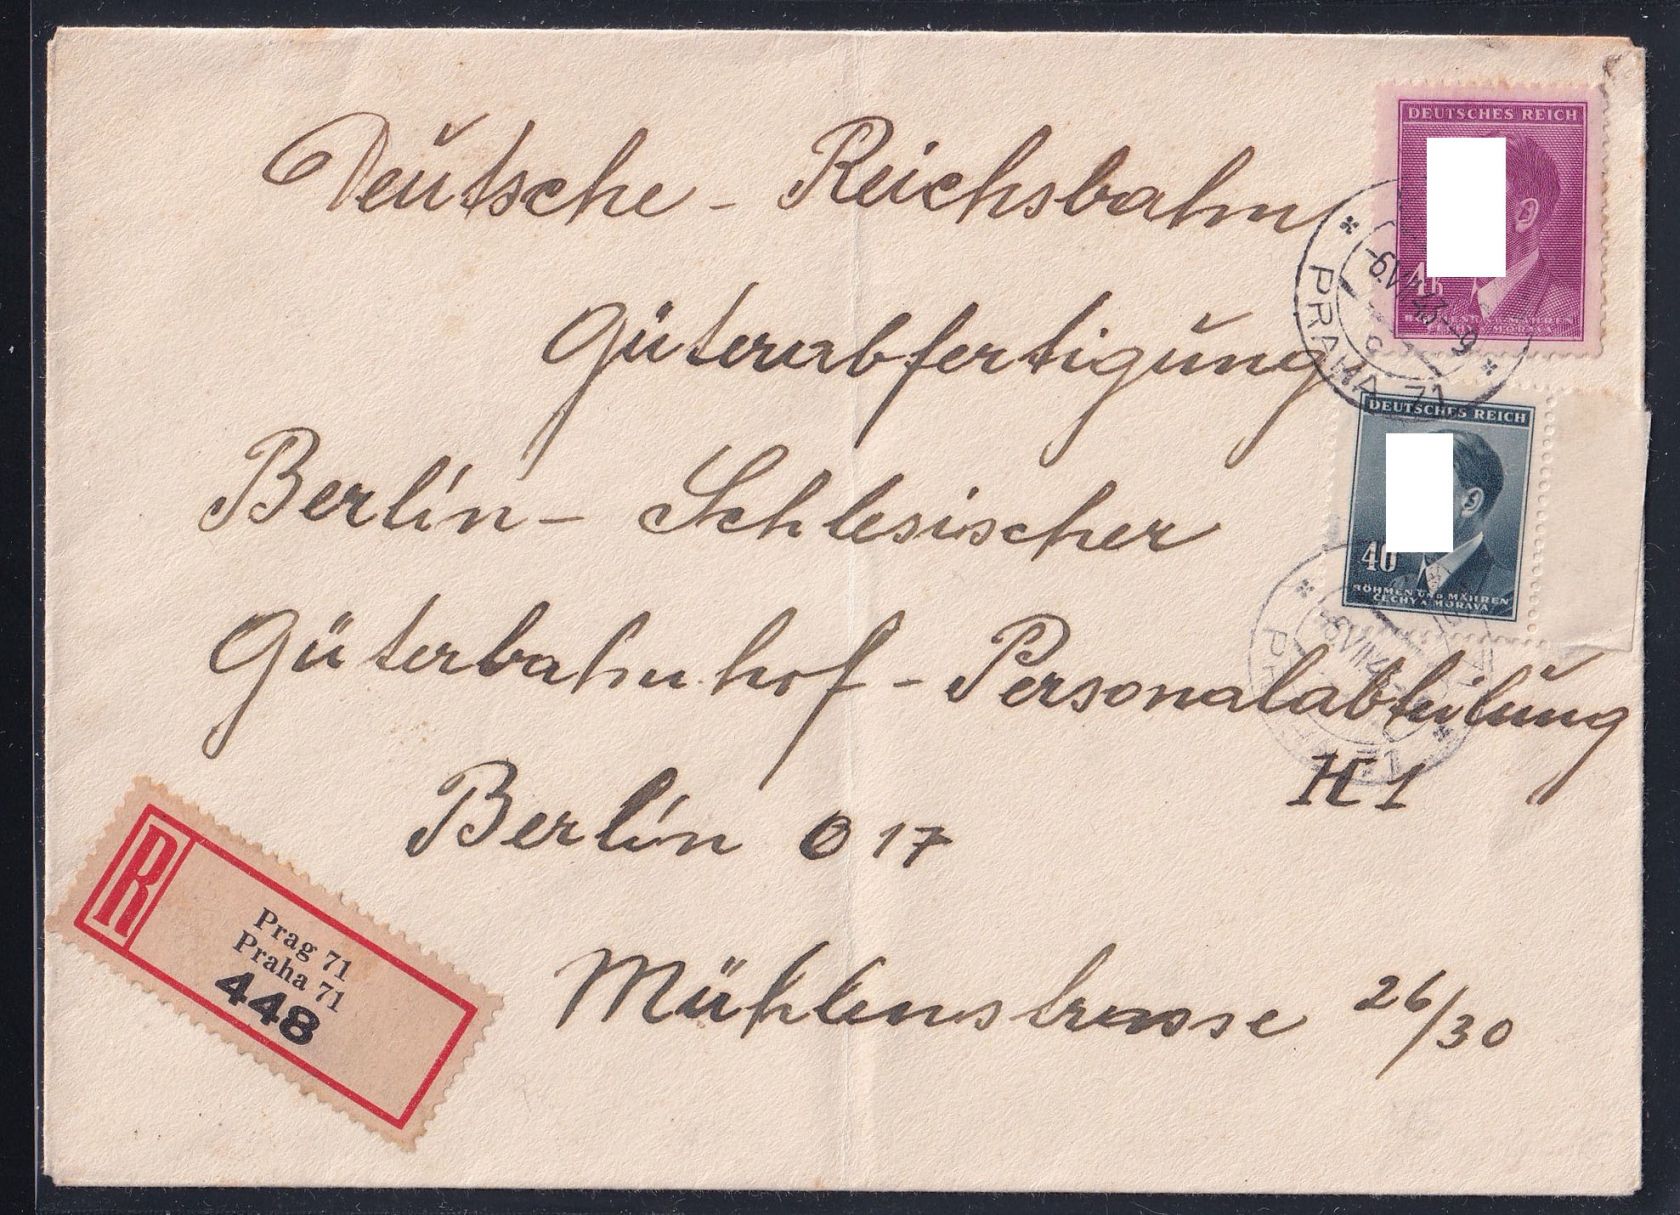 Deutsche - Reichsbahn
Güterabfertigung
Berlin - Schlesischer
Güterbahnhof - Personalabteilung
H 1
Berlin O 17
Mühlenstrasse 26/30
DEUTSCHES REICH
BÖHMEN UND MÄHREN
ČECHY A MORAVA
PRAHA 71
DEUTSCHES REICH
40
BÖHMEN UND MÄHREN
ČECHY A MORAVA
71
R
Prag 71
Praha 71
448